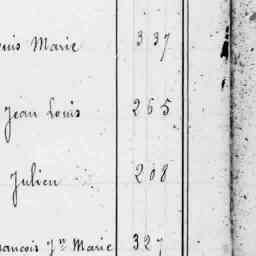 Louis Marie 337
Jean Louis 265
Julien 208
François Jn Marie 327